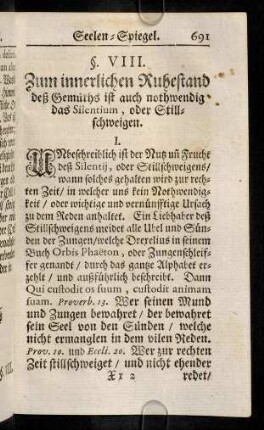 Seelen-Spiegel. 691
§. VIII.
Zum innerlichen Ruhestand
deß Gemüths ist auch nothwendig
das Silentium, oder Still-
schweigen.
I.
UNbeschreiblich ist der Nutz uñ Frucht
deß Silentij, oder Stillschweigens/
wann solches gehalten wird zur rech-
ten Zeit/ in welcher uns kein Nothwendig-
keit / oder wichtige und vernünfftige Ursach
zu dem Reden anhaltet. Ein Liebhaber deß
Stillschweigens meidet alle Ubel und Sün-
den der Zungen/welche Drexelius in seinem
Buch Orbis Phaëton, oder Zungenschleif-
fer genandt / durch das gantze Alphabet er-
zehlt / und außführlich beschreibt. Dann
Qui custodit os suum, custodit animam
suam. Proverb. 13. Wer seinen Mund
und Zungen bewahret / der bewahret
sein Seel von den Sünden / welche
nicht ermanglen in dem vilen Reden.
Prov. 10. und Eccli. 20. Wer zur rechten
Zeit stillschweiget / und nicht ehender
Xx 2 redet/